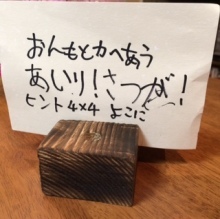 おんもとカへあう
あいり！さつがっ！
ヒント4×4 よこに